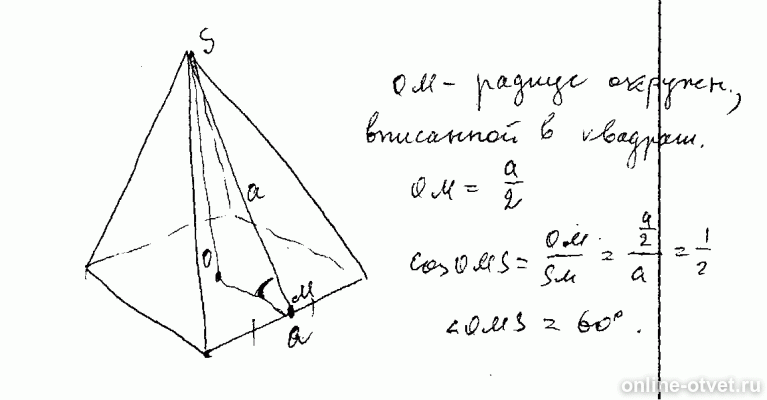 S
ОМ - радиус окружн.,
вписанной в квадрат.
ОМ = a/2
a
cos OMS = OM/SM = (a/2)/a = 1/2
О
М
a
∠OMS = 60°.
online-otvet.ru